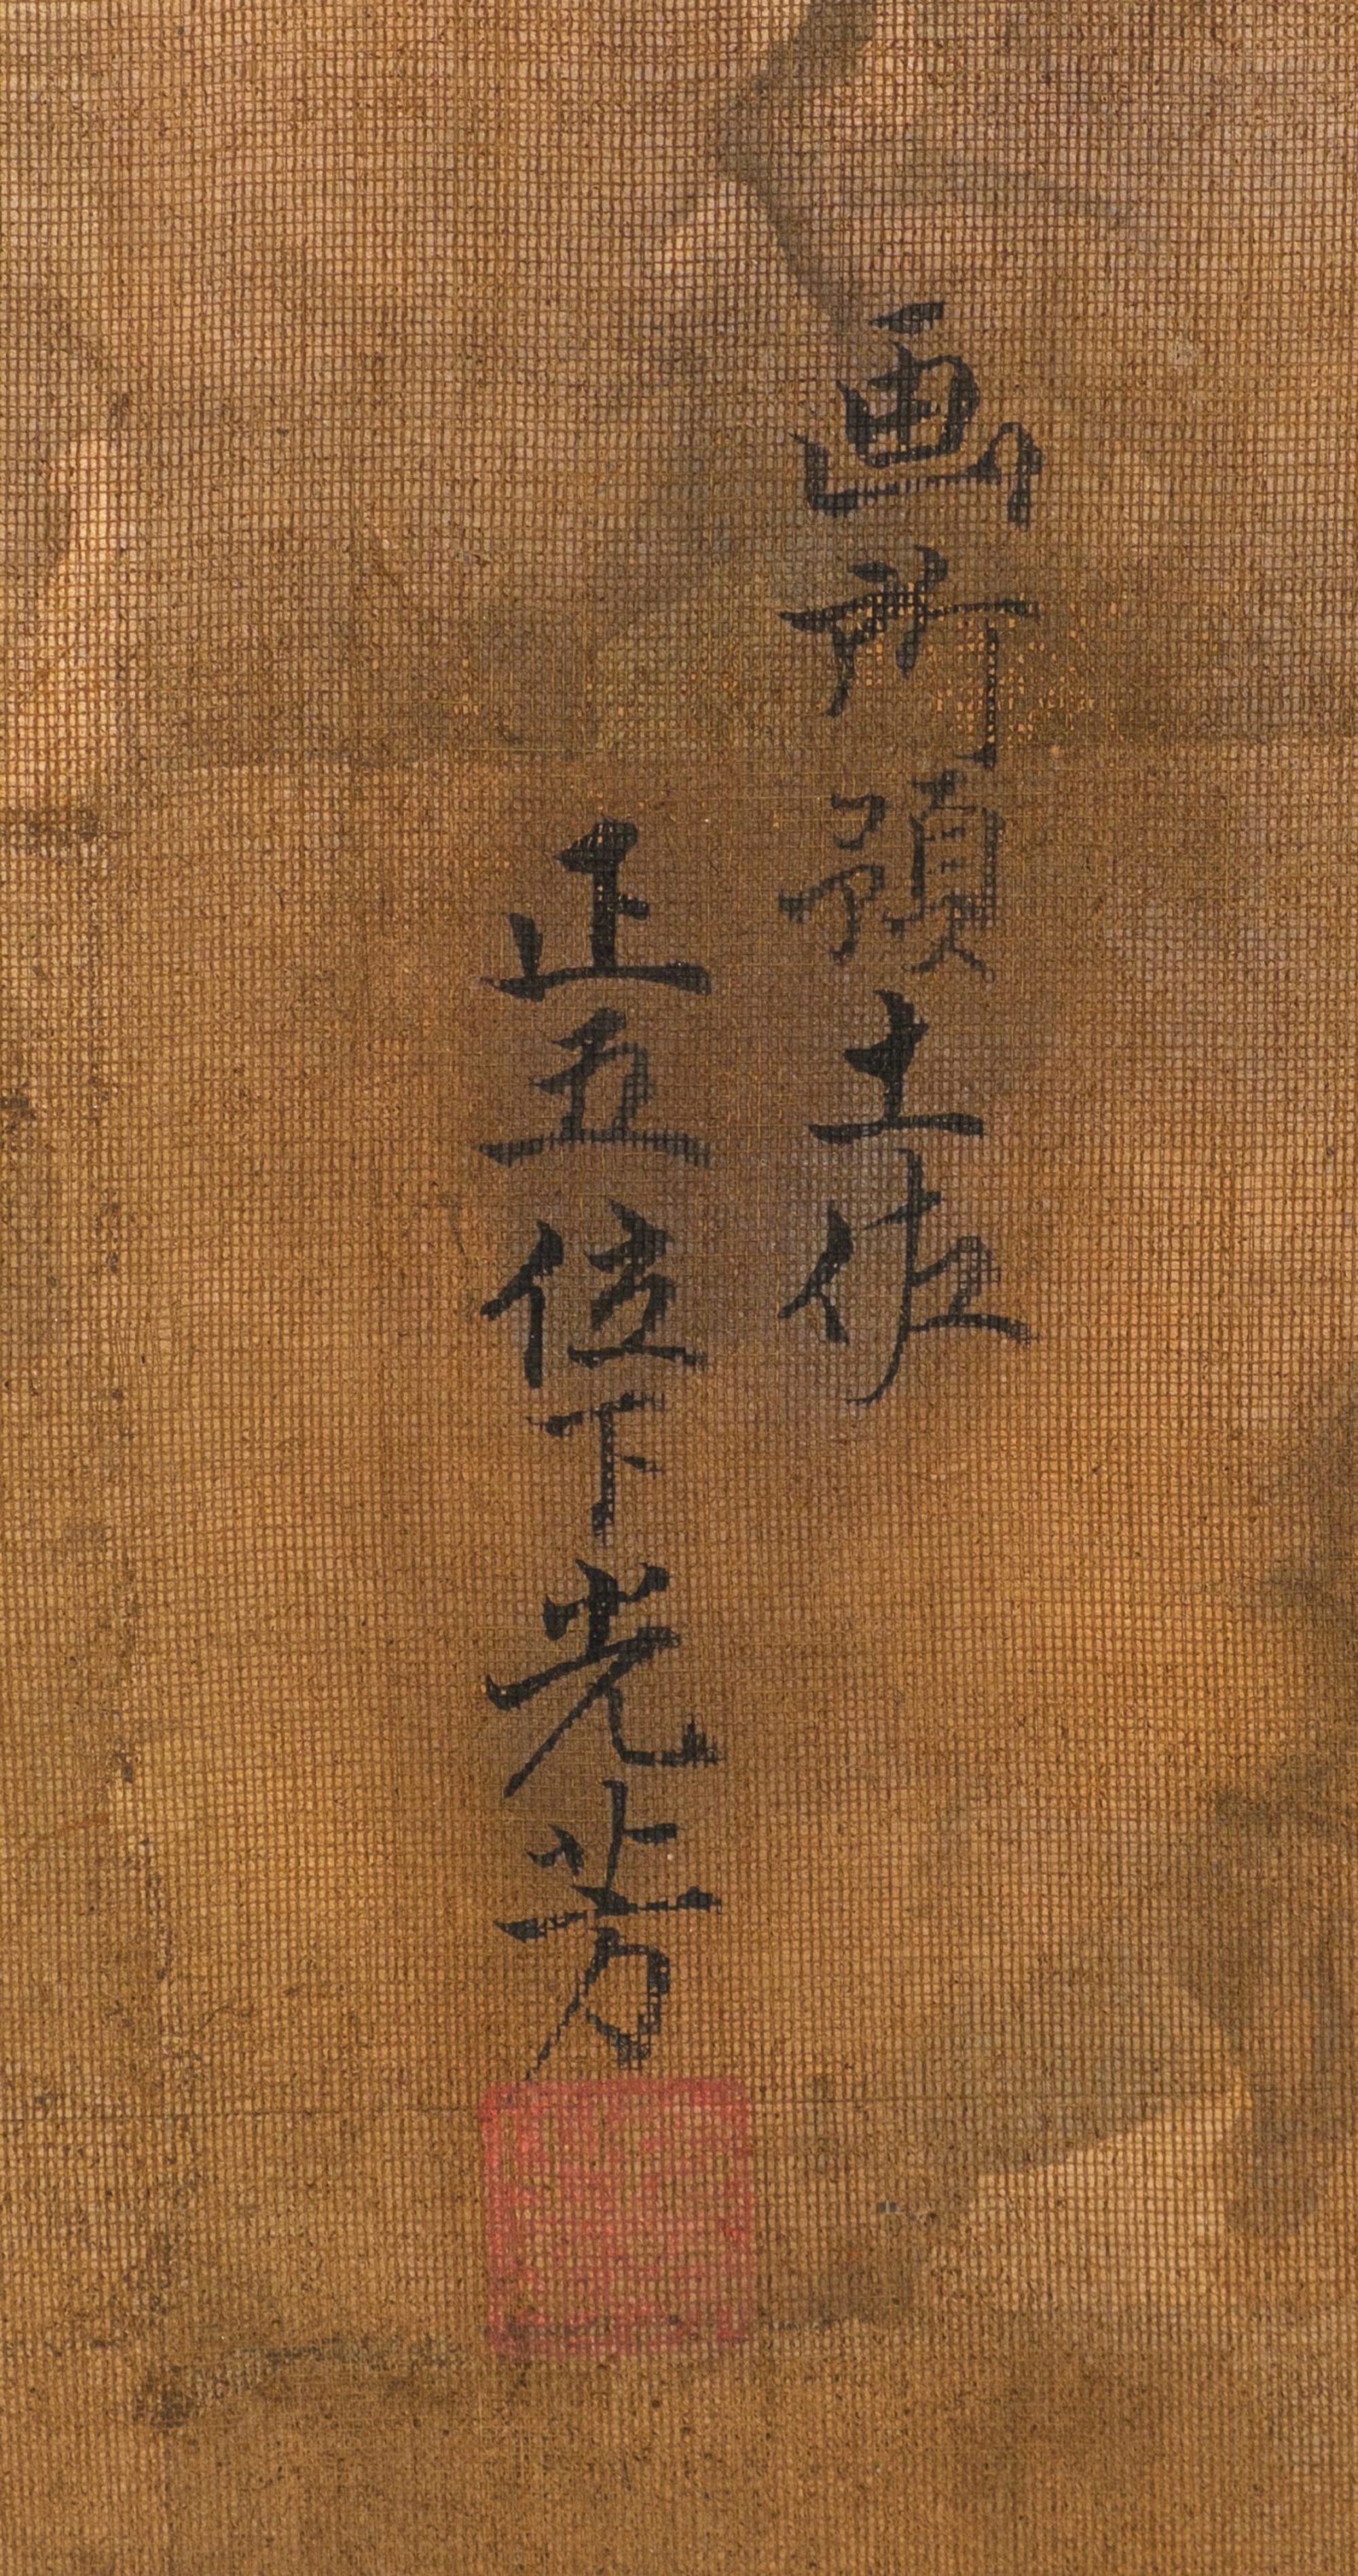 画所預土佐
正五位下光芳